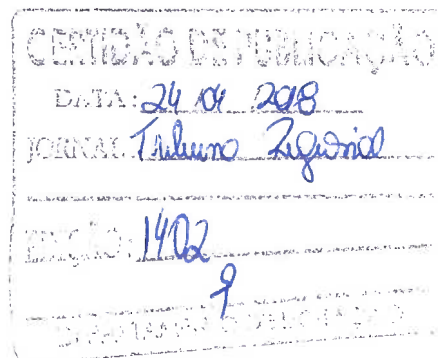 CERTIDÃO DE PUBLICAÇÃO
DATA: 24 04 2018
JORNAL: Tribuna Regional
EDIÇÃO: 1402